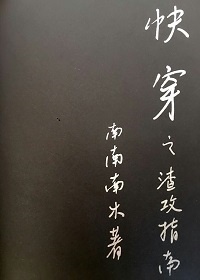 快穿之渣攻指南
南南南木著